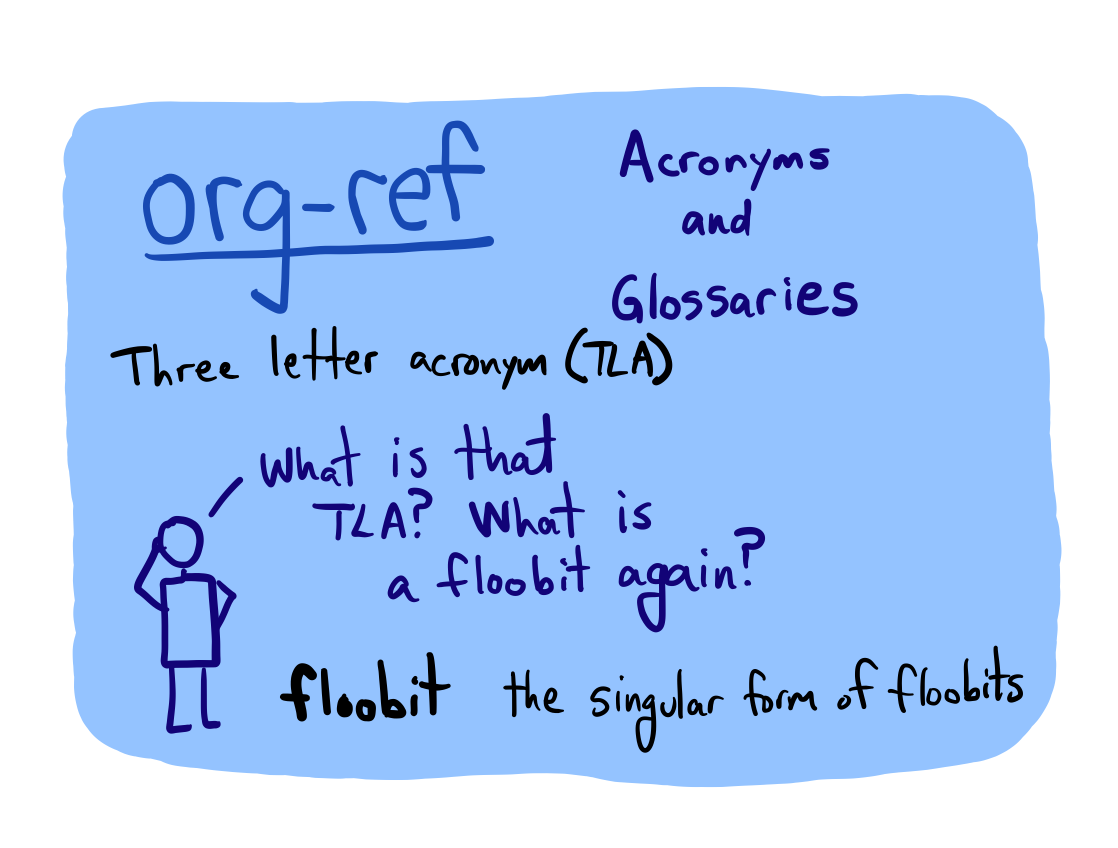 org-ref
Acronyms
and
Glossaries
Three letter acronym (TLA)
What is that
TLA? What is
a floobit again?
floobit the singular form of floobits